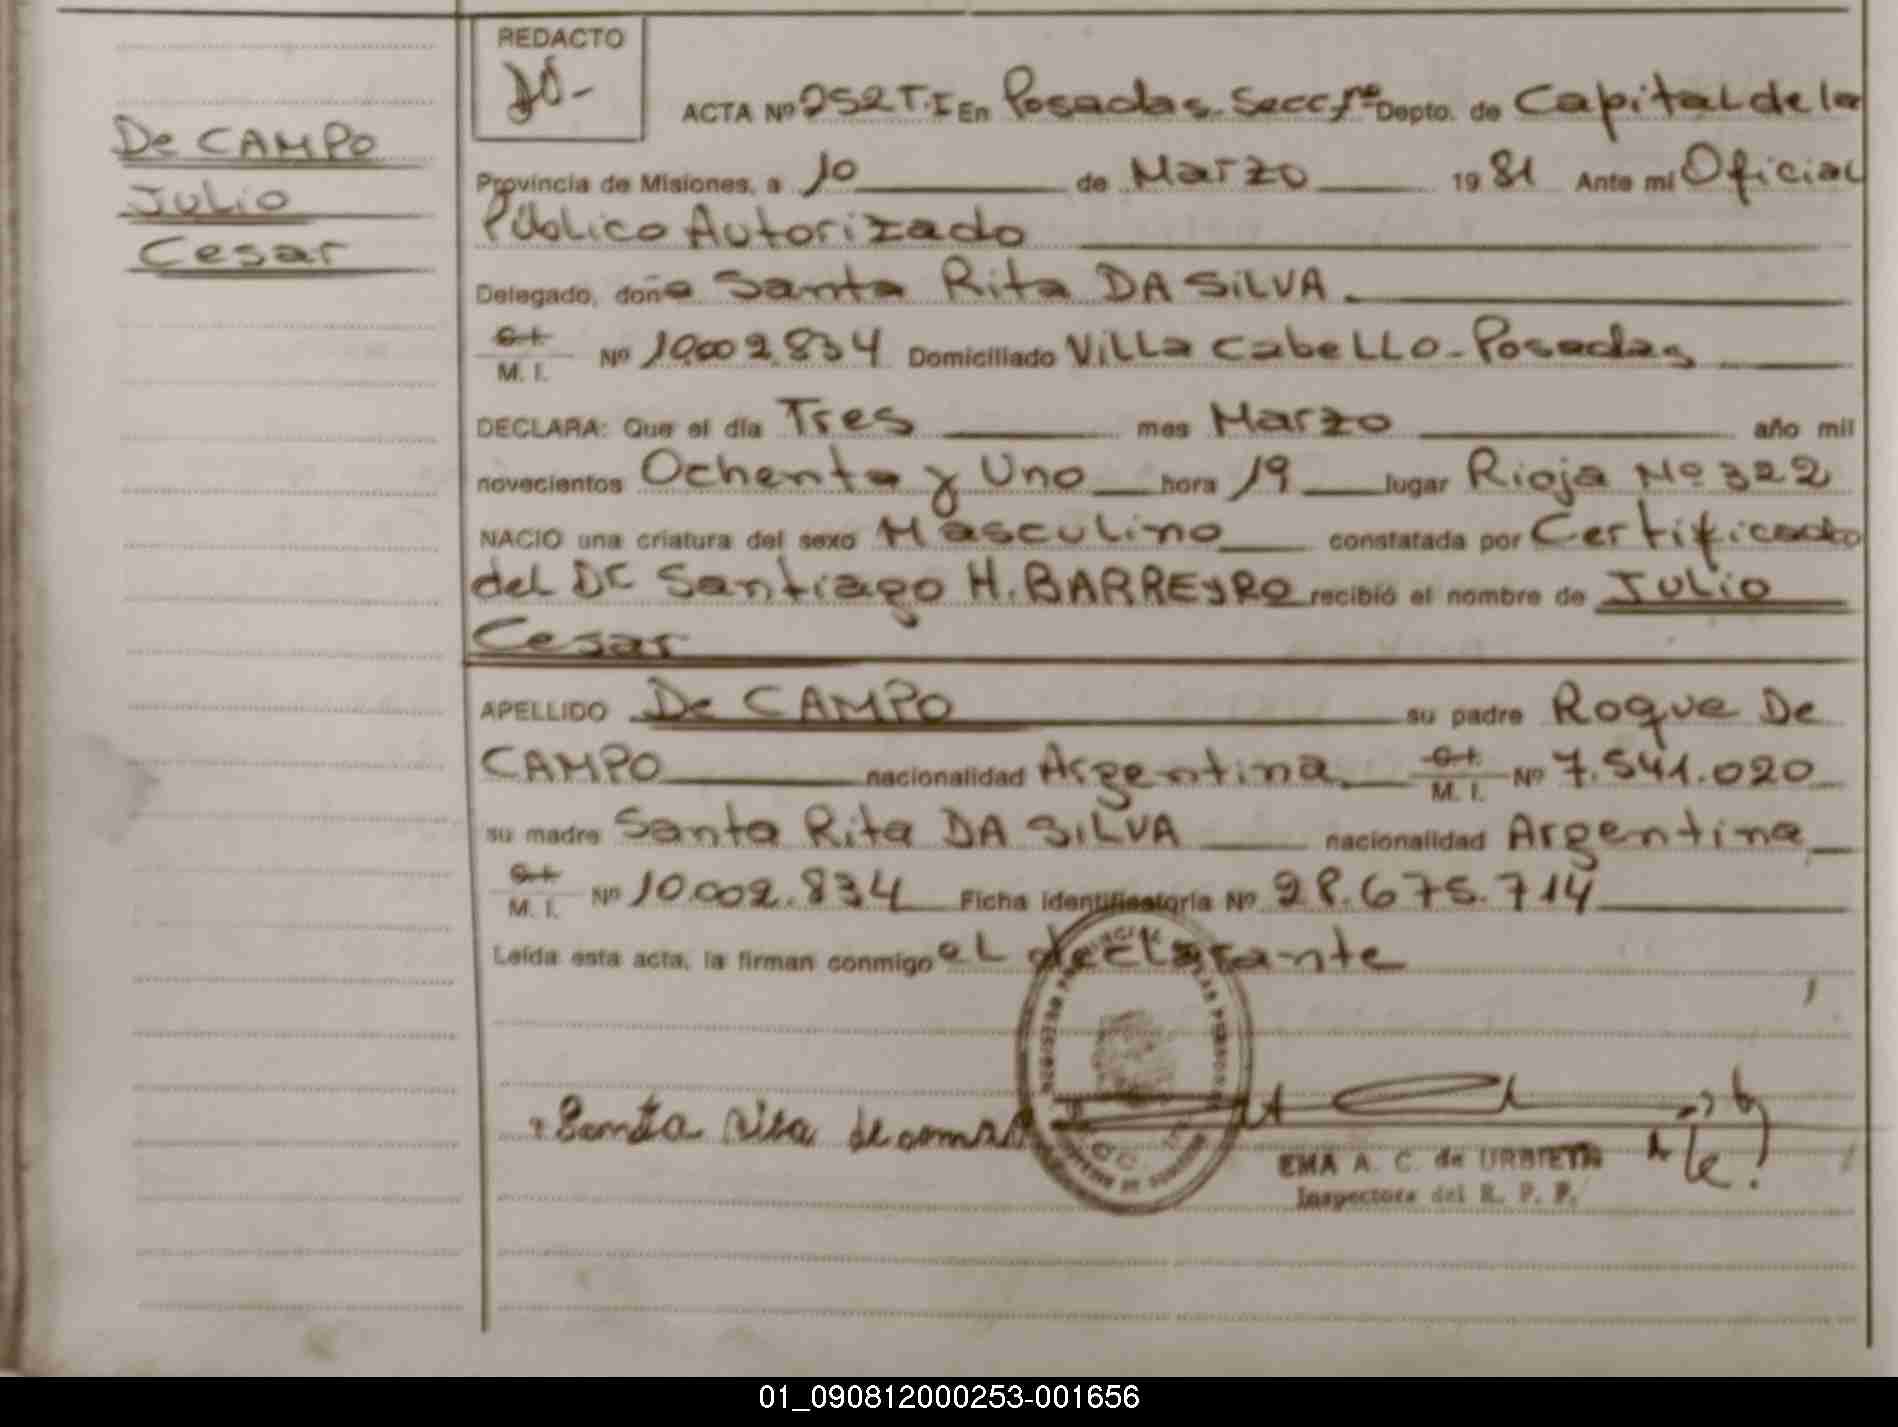 De CAMPO
Julio
Cesar
REDACTO
ACTA Nº 252 T. I En Posadas Secc 1ra Depto. de Capital de la
Provincia de Misiones, a 10 de Marzo 1981 Ante mi Oficial
Público Autorizado
Delegado, doña Santa Rita DA SILVA.
C. I.
M. I. Nº 10.002.834 Domiciliado Villa Cabello - Posadas
DECLARA: Que el día Tres mes Marzo año mil
novecientos Ochenta y Uno hora 19 lugar Rioja Nº 322
NACIO una criatura del sexo Masculino constatada por Certificado
del Dr Santiago H. BARREYRO recibió el nombre de Julio
Cesar
APELLIDO De CAMPO su padre Roque De
CAMPO nacionalidad Argentina C. I. M. I. Nº 7.541.020
su madre Santa Rita DA SILVA nacionalidad Argentina
C. I.
M. I. Nº 10.002.834 Ficha identificatoria Nº 28.675.714
Leída esta acta, la firman conmigo el declarante
Santa Rita de
EMA A. C. de URBIETA
Inspectora del R. P. P.
01_090812000253-001656